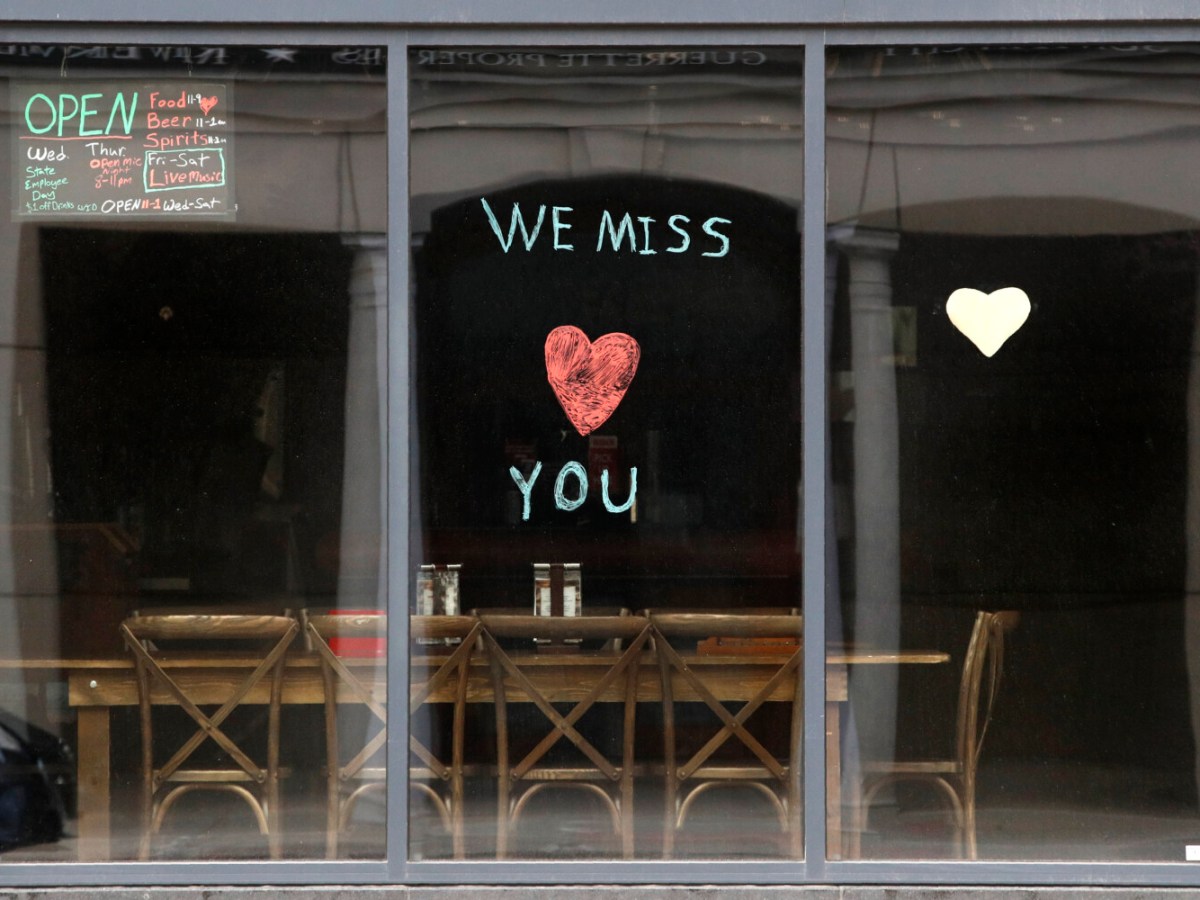 OPEN
Food 11-9
Beer 11-1am
Spirits 11-1am
Wed
State
Employee
Day
$1 off Drinks w/ID
Thur
Open mic
Night
8-11pm
Fri-Sat
Live music
OPEN 11-1 Wed-Sat
WE MISS
YOU
GUERRETTE PROPER